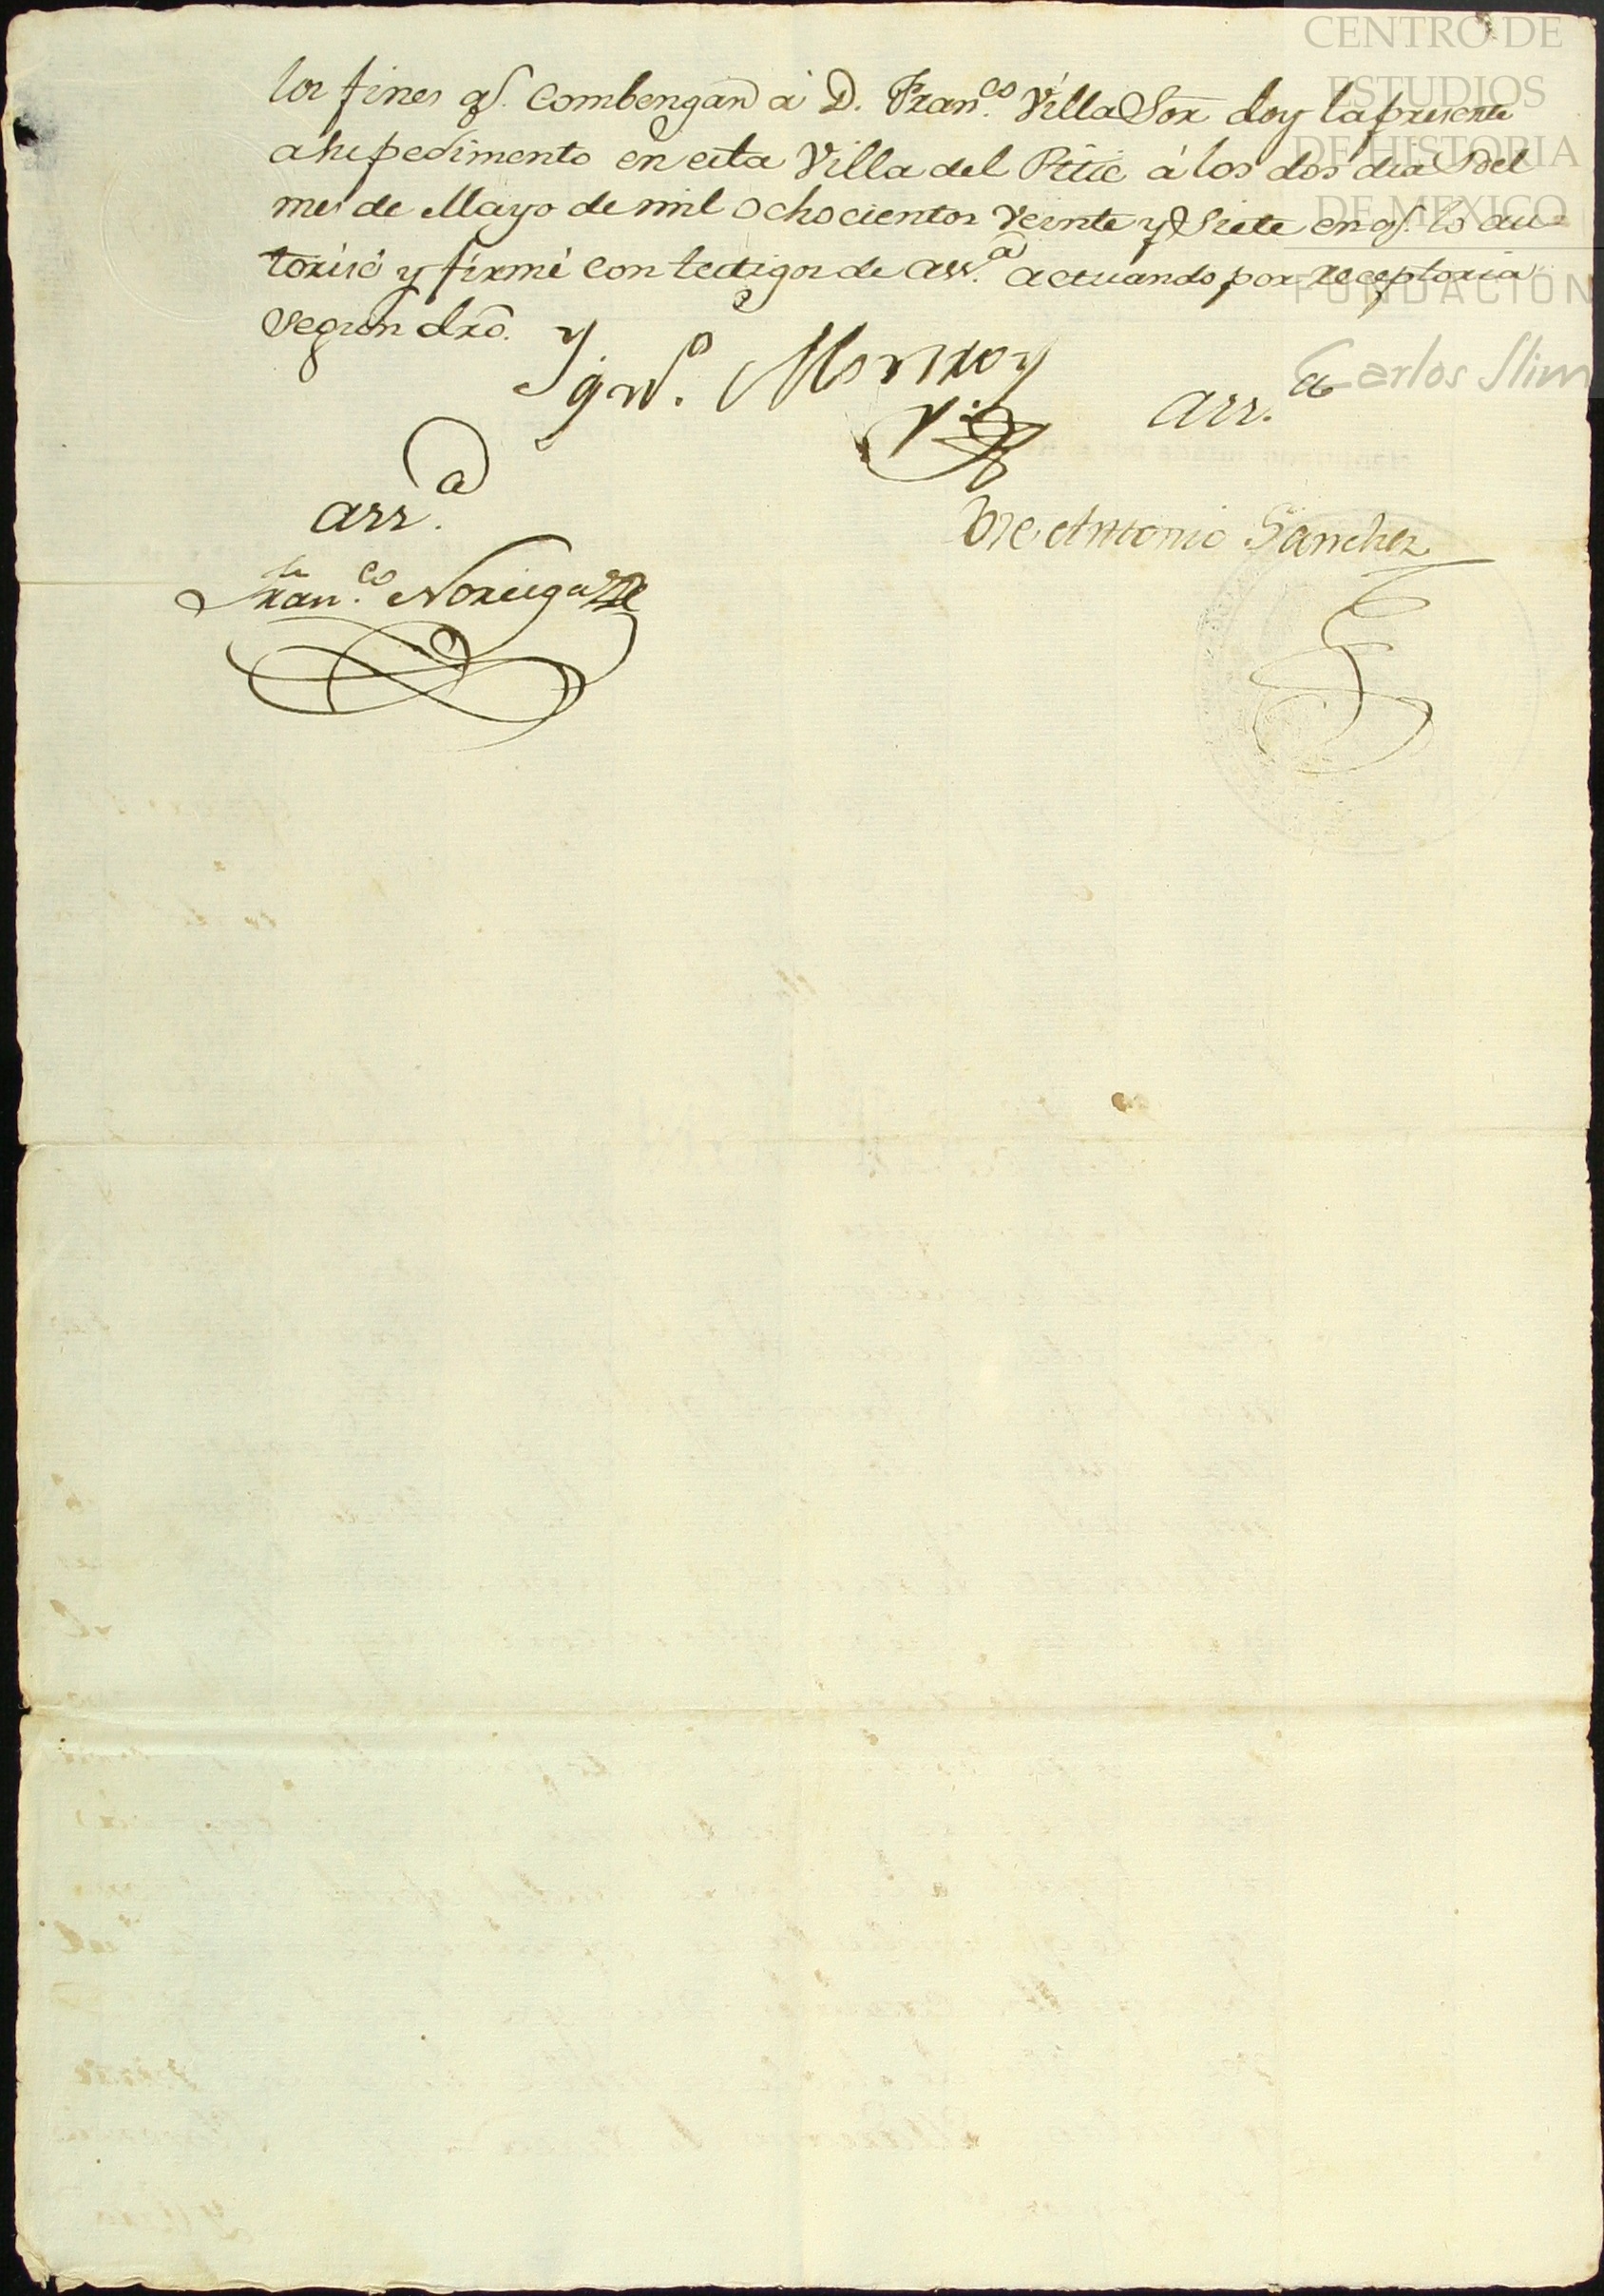 CENTRO DE
ESTUDIOS
DE HISTORIA
DE MEXICO
FUNDACIÓN
Carlos Slim
los fines q.e Combengan á D. Fran.co VillaSor doy la presente
a su pedimento en esta Villa del Pitic á los dos dias del
mes de Mayo de mil ochocientos veinte y Siete en q.e lo au-
torisé y firmé con testigos de ass.a actuando por receptoria
Segun dro.
Ygn.o Monroy
ass.a
ass.a
Jose Antonio Sanchez
Fran.co Noriega